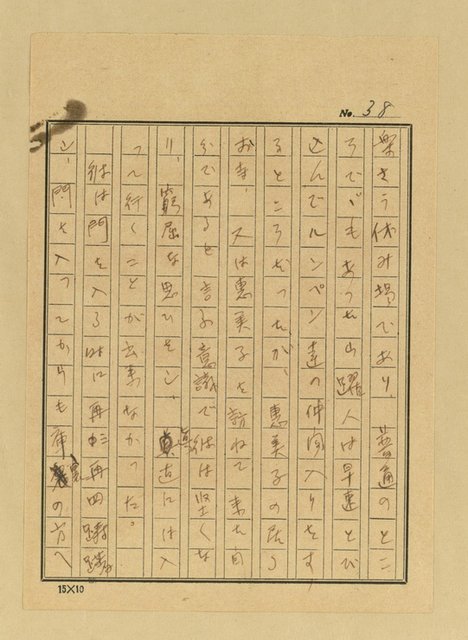 No. 38
楽さう休み場であり 普通のとこ
ろで、もあつたら躍人は早速とび
込んでルンペン達の仲間入りをす
るところだつたが、恵美子の居る
お寺、又は恵美子を訪ねて来た自
分であると言ふ意識で彼は堅くな
り、窮屈な思ひをし、真直には入
つて行くことが出来なかつた。
彼は門を入る時に再三再四躊躇
し、門を入つてからも庫裏の方へ
15×10